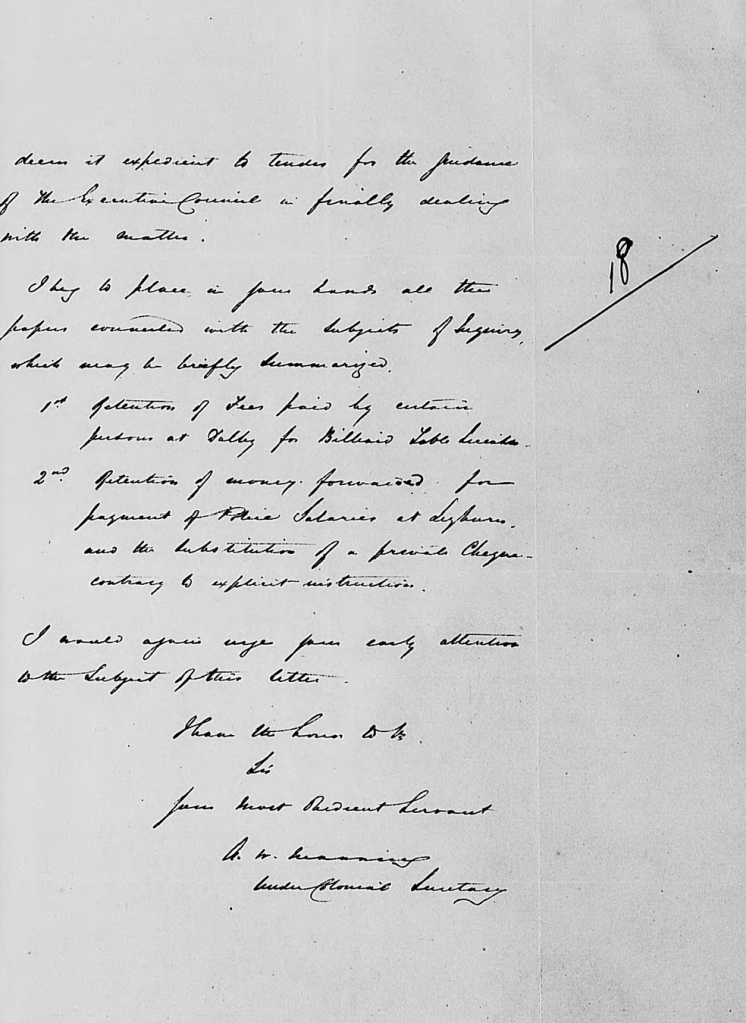 deem it expedient to tender for the guidance
of the Executive Council in finally dealing
with the matter.
18
I beg to place in your hands all the
papers connected with the subjects of Inquiry,
which may be briefly summarized.
1st Retention of Fees paid by certain
persons at Dalby for Billiard Table Licenses.
2nd. Retention of money forwarded for
payment of Police Salaries at
and the substitution of a private Cheque
contrary to explicit instruction.
I would again urge your early attention
to the Subject of this letter.
I have the honor to be.
Sir
Your most Obedient Servant
A. W. Manning
Under Colonial Secretary